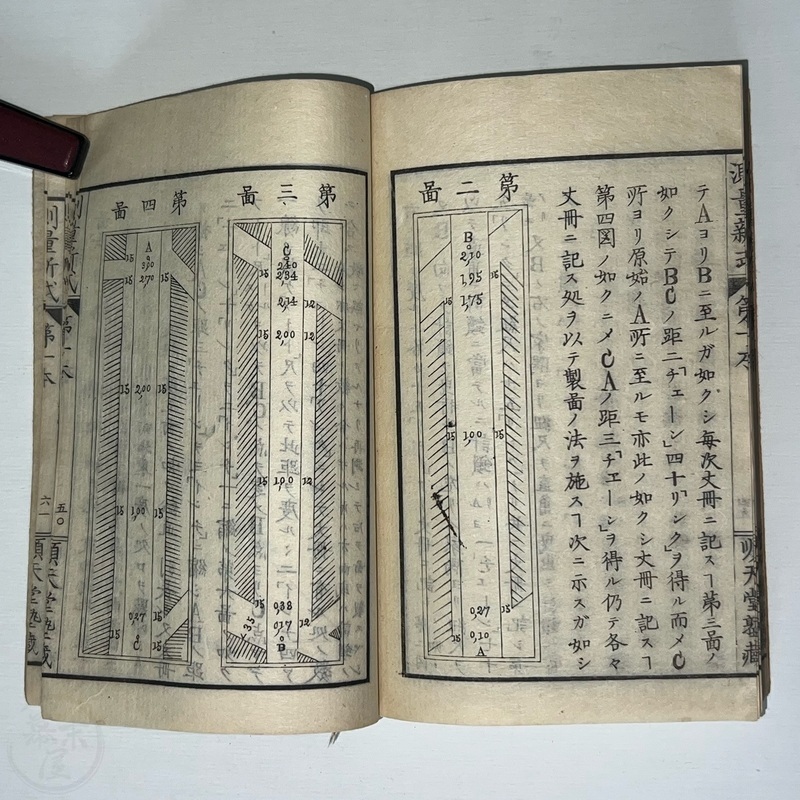 測量新式 第一本 順天堂塾蔵
テAヨリBニ至ルガ如クシ毎次丈冊ニ記スヿ第三圖ノ
如クシテBCノ距二「チェーン」四十「リンク」ヲ得ル而メC
所ヨリ原始ノA所ニ至ルモ亦此ノ如クシ丈冊ニ記スヿ
第四図ノ如クニメCAノ距三「チエーン」ヲ得ル仍テ各々
丈冊ニ記ス処ヲ以テ製圖ノ法ヲ施スヿ次ニ示スガ如シ
第二圖
B
2,10
1,95 15
15 1,75
15 1,00 15
0,27 15
15 0,10
A
第三圖
C
2,40
15 2,34
2,14 12
15 2,00 12
15 1,00 12
15 0,38
0,17 12
35
B
第四圖
A
15 3,00
15 2,70 15
15 2,00 15
15 1,00 15
0,27 15
15 C
測量新式 第一本 五〇 順天堂塾蔵
測量新式 第一本 六一 順天堂塾蔵